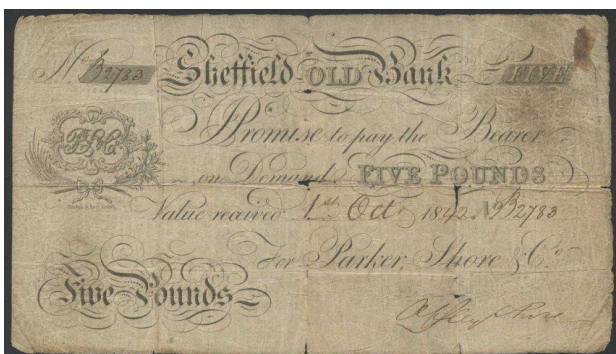 No. B2783 Sheffield OLD Bank FIVE
I Promise to pay the Bearer
on Demand FIVE POUNDS
Value received 1st Oct. 1842 No B2783
For Parker, Shore & Co.
Five Pounds